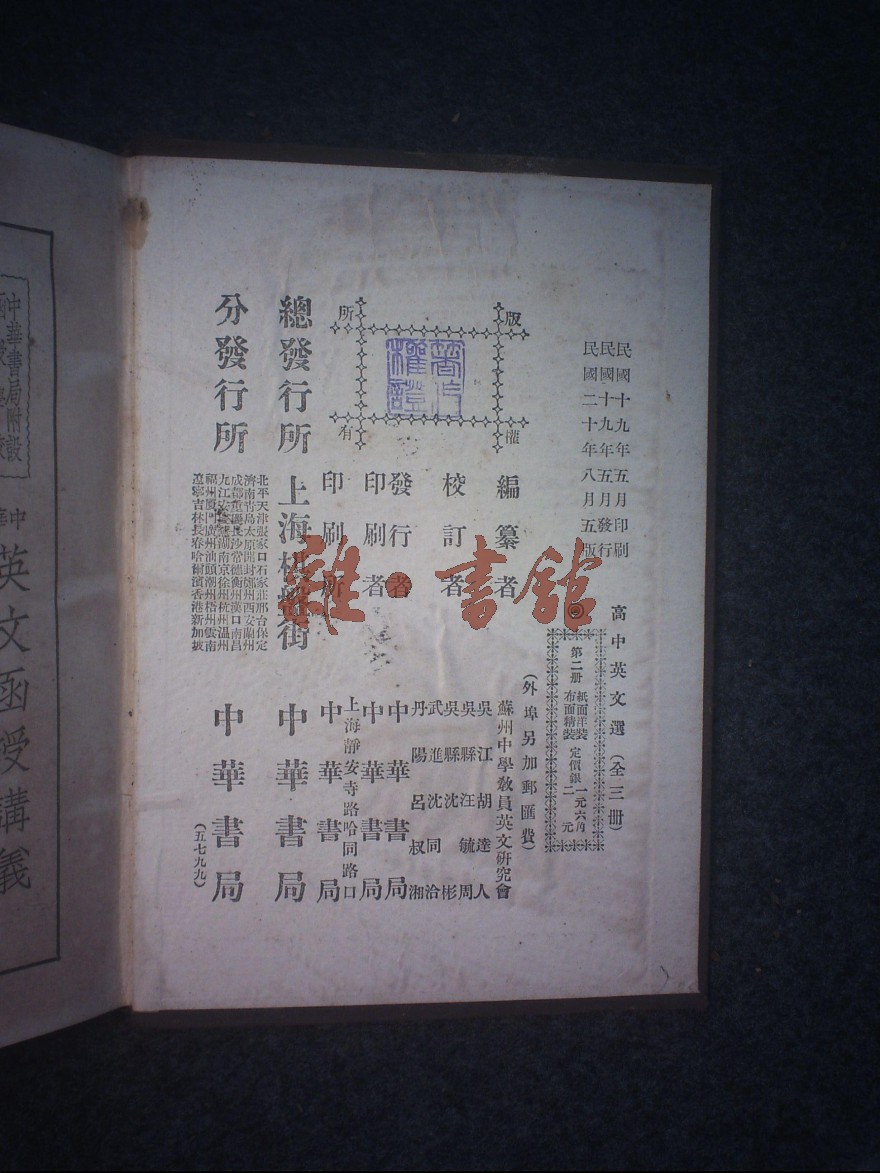 民國十九年五月印刷
民國十九年五月發行
民國二十年八月五版
高中英文選（全三册）
第二册
紙面洋裝 定價銀一元六角
布面精裝 定價銀二元
（外埠另加郵匯費）
版權所有
著作權證
編纂者 蘇州中學敎員英文研究會
校訂者
吳江胡達人
吳縣汪毓周
吳縣沈彬
武進沈同洽
丹陽呂叔湘
發行者 中華書局
印刷者 中華書局
印刷所
上海靜安寺路哈同路口
中華書局
總發行所 上海棋盤街 中華書局
分發行所
北平天津張家口石家莊邢台保定
濟南靑島太原開封鄭州西安蘭州
成都重慶長沙常德衡州漢口南昌
九江安慶蕪湖南京徐州杭州溫州
福州廈門廣州汕頭潮州梧州雲南
遼寧吉林長春哈爾濱香港新加坡
中華書局
（五七九九）
中華書局附設
英文函授講義
雜·書館